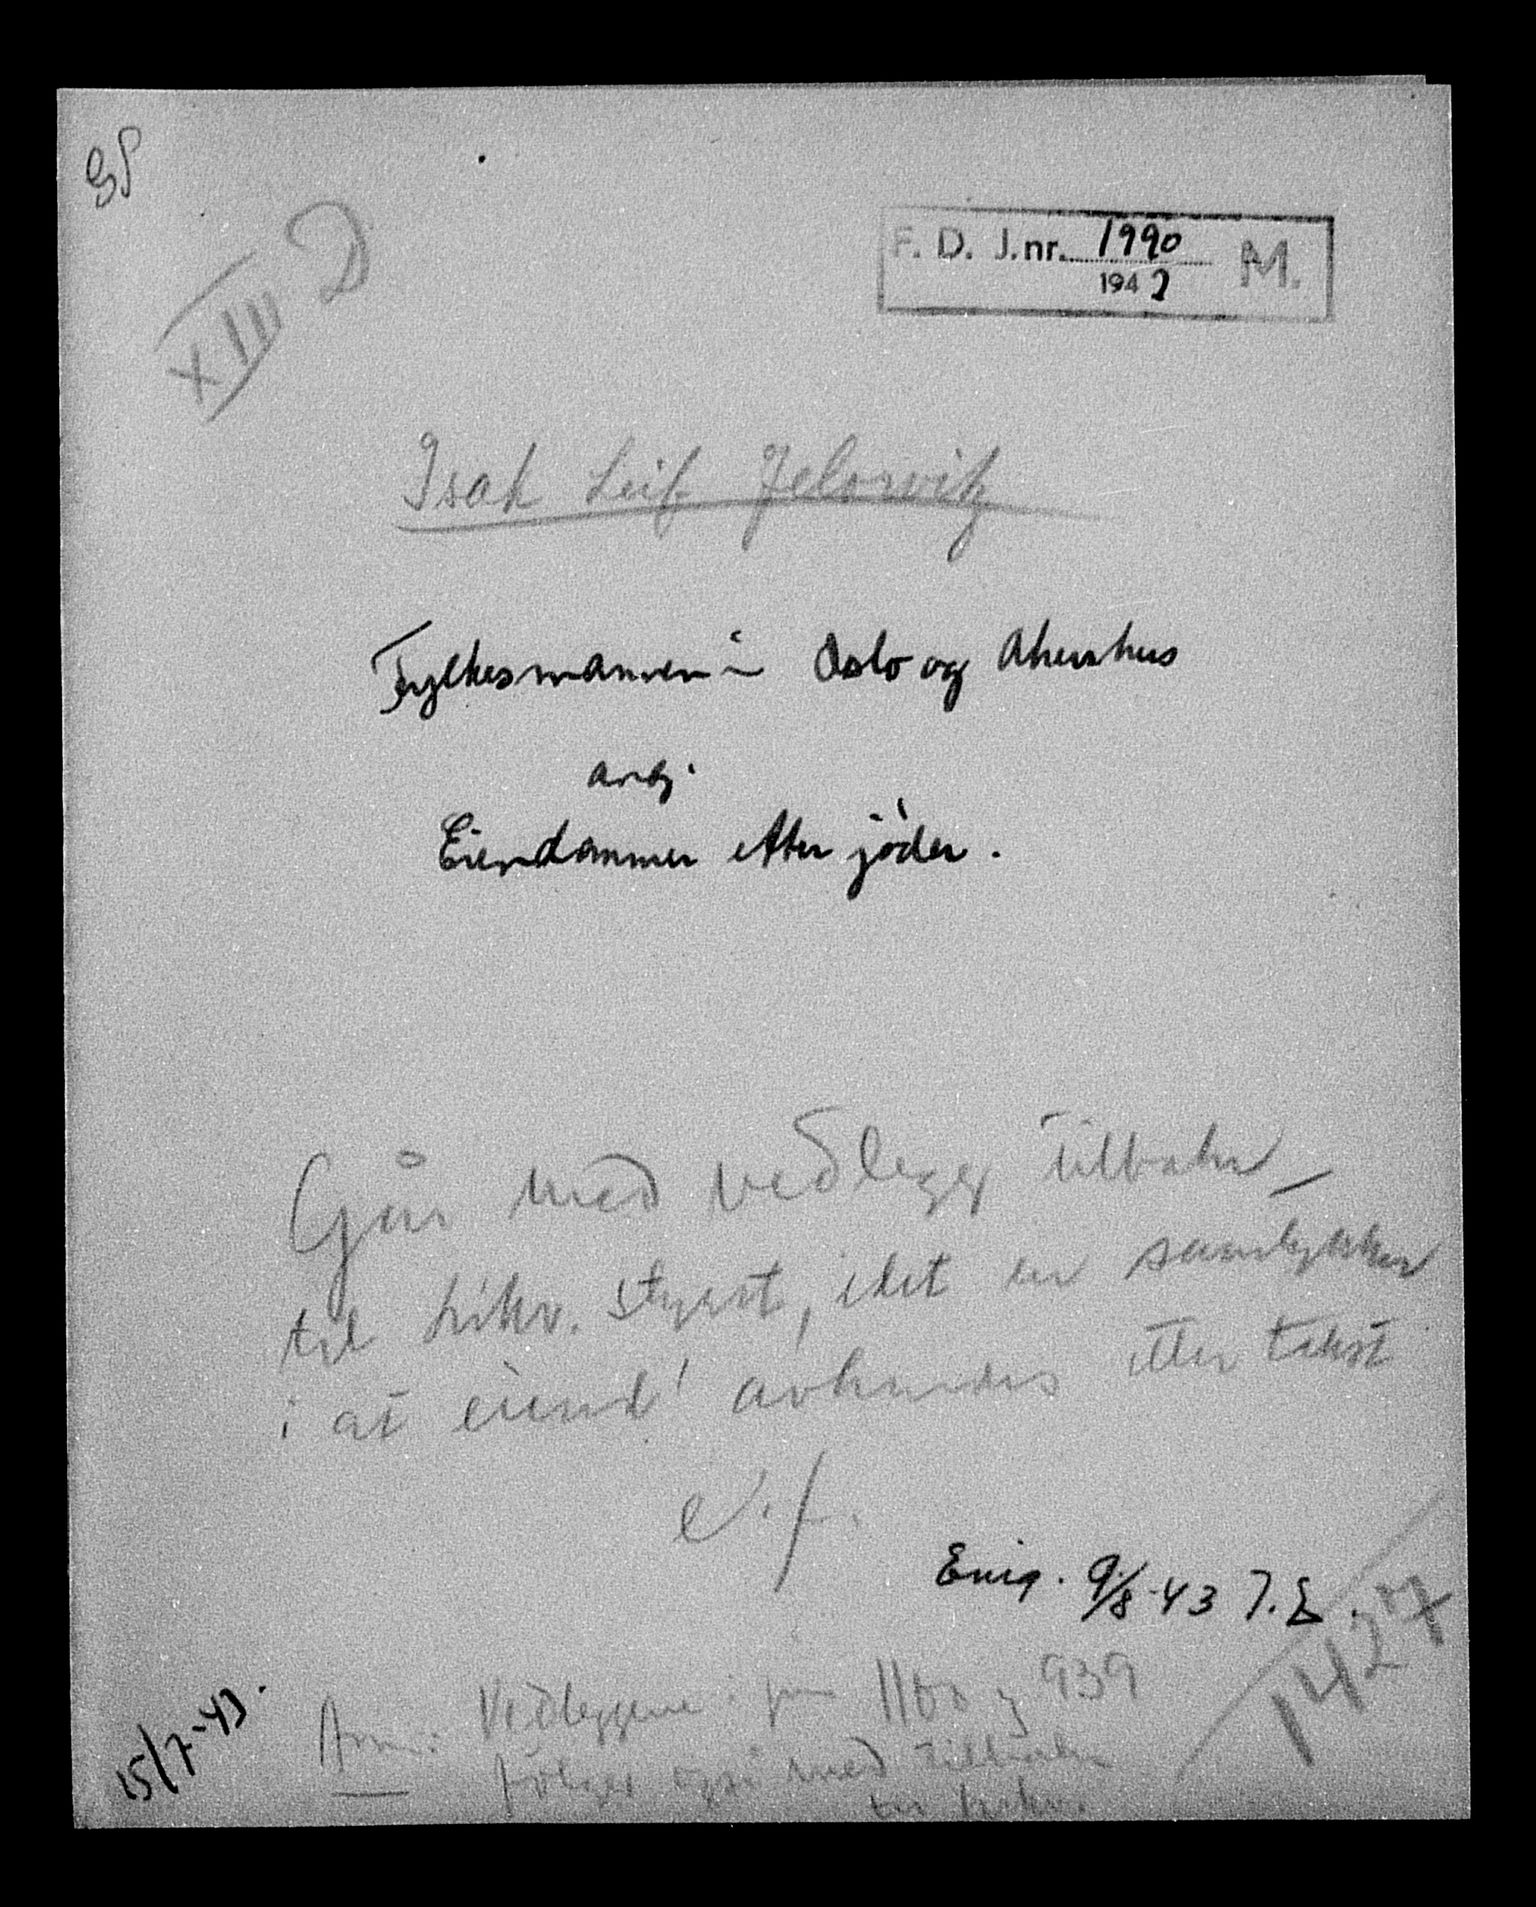 XIII D
F. D. J.nr. 1990 M.
1942
Isak Leif Jelowitz
Fylkesmannen i Oslo og Akershus
ang.
Eiendommer etter jøder.
Går med vedlegg tilbake
til Likv. styret, idet en samtykker
i at eiend' avhendes etter takst
e.f.
Enig. 9/8-43 J.E.
1427
15/7-43.
Anm: Vedleggene i jnr 1160 og 939
følger også med tilbake
til Likv.